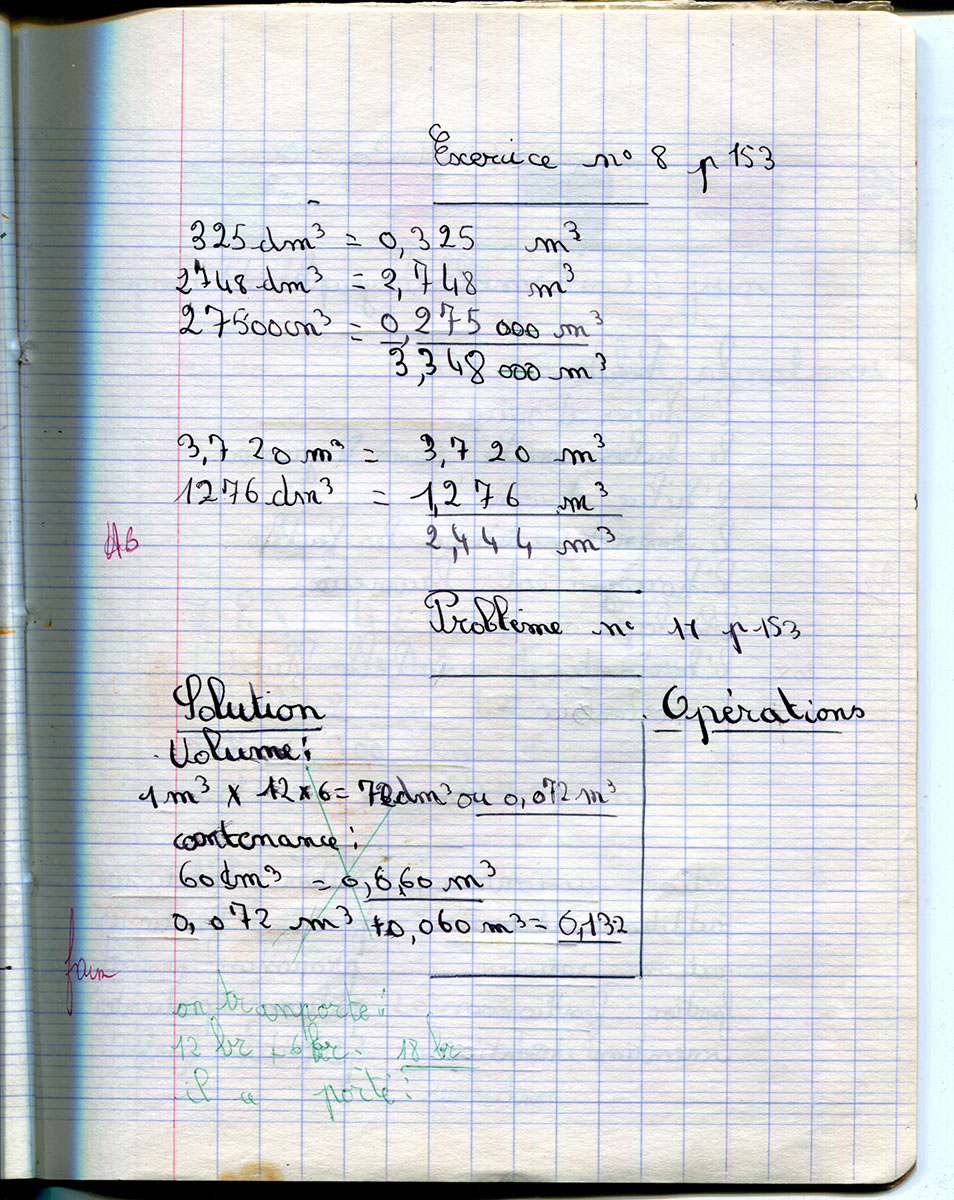 Exercice n° 8 p 153
325 dm³ = 0,325 m³
2748 dm³ = 2,748 m³
27500cm³ = 0,275 000 m³
3,348 000 m³
3,720 m³ = 3,720 m³
1276 dm³ = 1,276 m³
2,444 m³
AB
Problème n° 11 p 153
Solution
Opérations
Volume :
1 m³ x 12 x 6 = 72dm³ ou 0,072 m³
contenance :
60 dm³ = 0,060 m³
0,072 m³ + 0,060 m³ = 0,132
faux
on tranporte :
12 br + 6 br = 18 br
il a porté :